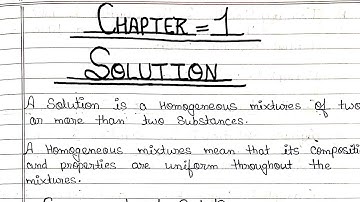 CHAPTER = 1
SOLUTION
A Solution is a Homogeneous mixtures of two
or more than two Substances.
A Homogeneous mixtures mean that its compositi
and properties are uniform throughout the
mixtures.